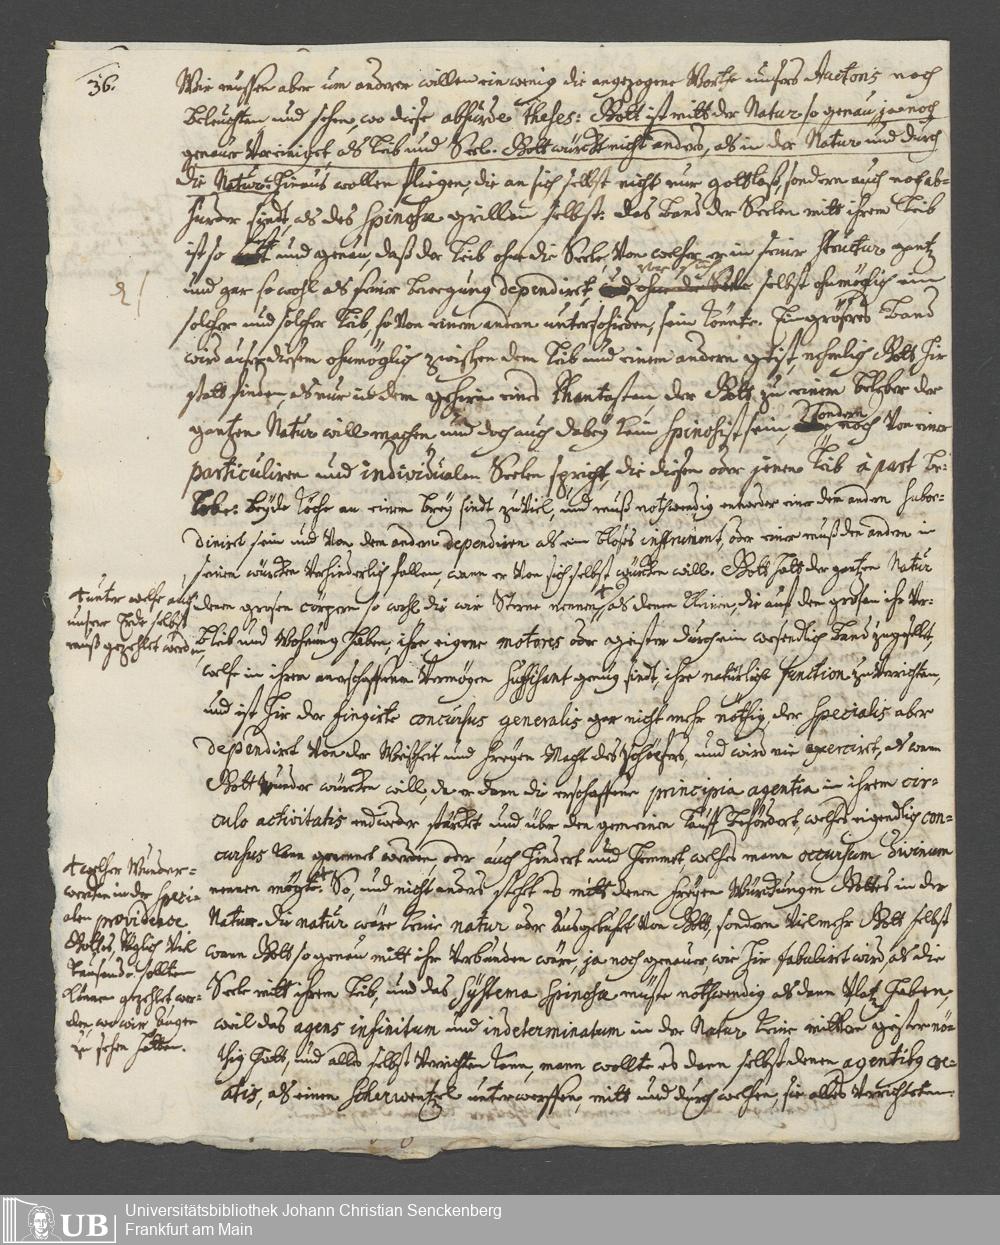 36.
Wir müssen aber um anderer willen ein wenig die angezogene Worte unsers Auctoris noch
beleuchten und sehen, wo diese absurde theses: Gott ist mitt der Natur so genau, ja noch
genauer vereiniget, als Leib und Seel. Gott würckt nicht anders, als in der Natur und durch
die Natur: hinaus wollen fliegen, die an sich selbst nicht nur gottloß, sondern auch noch ab-
surder sindt, als des Spinosæ grillen selbst: das Band der Seelen mitt ihrem Leib
ist so und genau, daß der Leib ohne die Seele, von welcher er in seiner Structur gantz
und gar so wohl als seiner bewegung dependiret selbst ohnmöglich ein
solcher und solcher Leib, so von einem andern unterschieden, sein könnte. Ein größres Band
wird außer diesem ohnmöglich zwischen dem Leib und einem andern geist, nehmlich Gott hir
statt finden, als nur in dem gehirn eines Phantasten, der Gott zu einem beleber der
gantzen Natur will machen, und doch auch dabey kein Spinosist sein, sondern noch von einer
particuliren und individualen Seelen spricht, die diesen oder jenen Leib à part be-
lebe: beyde Köche an einem brey sindt zu viel, und muß nothwendig entweder einer dem andern subor-
diniret sein und von dem andern dependiren als ein bloses instrument, oder einer muß den andern in
seinen würcken verhinderlich fallen, wann er von sich selbst würcken will. Gott hatt der gantzen Natur
denen grosen cörpern so wohl die wir Sterne nennen, als denen kleinen, die auf den grosen ihr ver-
bleib und Wohnung haben, ihre eigene motores oder geister durch ein wesendlich Band zugesellt,
welche in ihrem anerschaffenem Vermögen suffisant genug sindt, ihre natürliche function zu verrichten,
und ist hir der fingirte concursus generalis gar nicht mehr nöthig, der specialis aber
dependiret von der Weißheit und freyen Macht des schöpfers, und wird nie exerciret, als wann
Gott wunder würcken will, da er dann die erschaffene principia agentia in ihrem cir-
culo activitatis endweder stärcket und über den gemeinen Lauff befördert, welches eigendlich con-
cursus kan genennet werden, oder auch hindert und hemmet welches mann occursum divinum
nennen mögte. So, und nicht anders stehet es mitt denen freyen Würckungen Gottes in der
Natur. die natur wäre keine natur oder Ausgeburht von Gott, sondern vielmehr Gott selbst
wann Gott so genau mitt ihr verbunden wäre, ja noch genauer, wie hir fabuliret wird, als die
Seele mitt ihrem Leib, und das Systema Spinosæ müste nothwendig als dann Platz haben,
weil das agens infinitum und indeterminatum in der Natur keine mittlere geister nö-
thig hatt, und alles selbst verrichten kann, mann wollte es dann selbst denen agentibus cre-
atis, als einem Scherwentzel unterwerffen, mitt und durch welchen, sie alles verrichteten.
unter welche auch
unsere Erde selbst
muß gezehlet werden
welcher Wunder-
wercken in der speci-
alen providence
Gottes täglich viel
tausend sollten
können gezehlet wer-
den, wo wir Augen
zu sehen hätten.
UB
Universitätsbibliothek Johann Christian Senckenberg
Frankfurt am Main